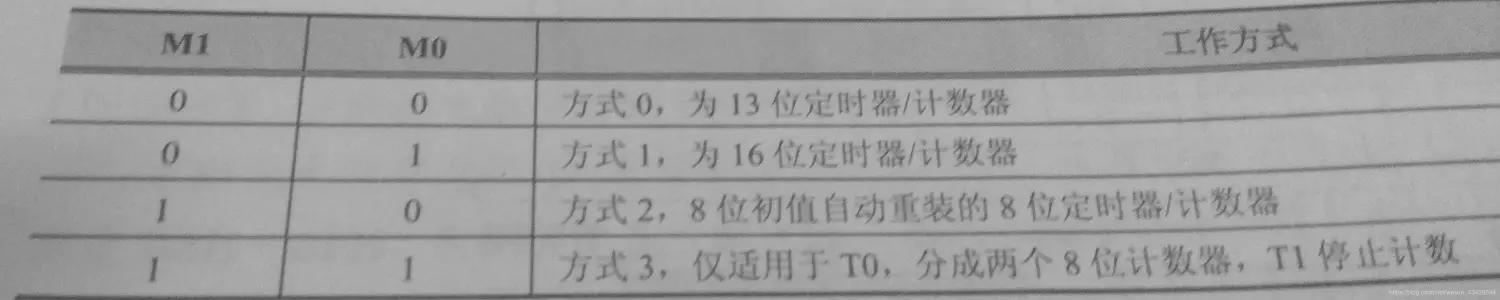 M1 M0 工作方式
0 0 方式0，为13位定时器/计数器
0 1 方式1，为16位定时器/计数器
1 0 方式2，8位初值自动重装的8位定时器/计数器
1 1 方式3，仅适用于T0，分成两个8位计数器，T1停止计数